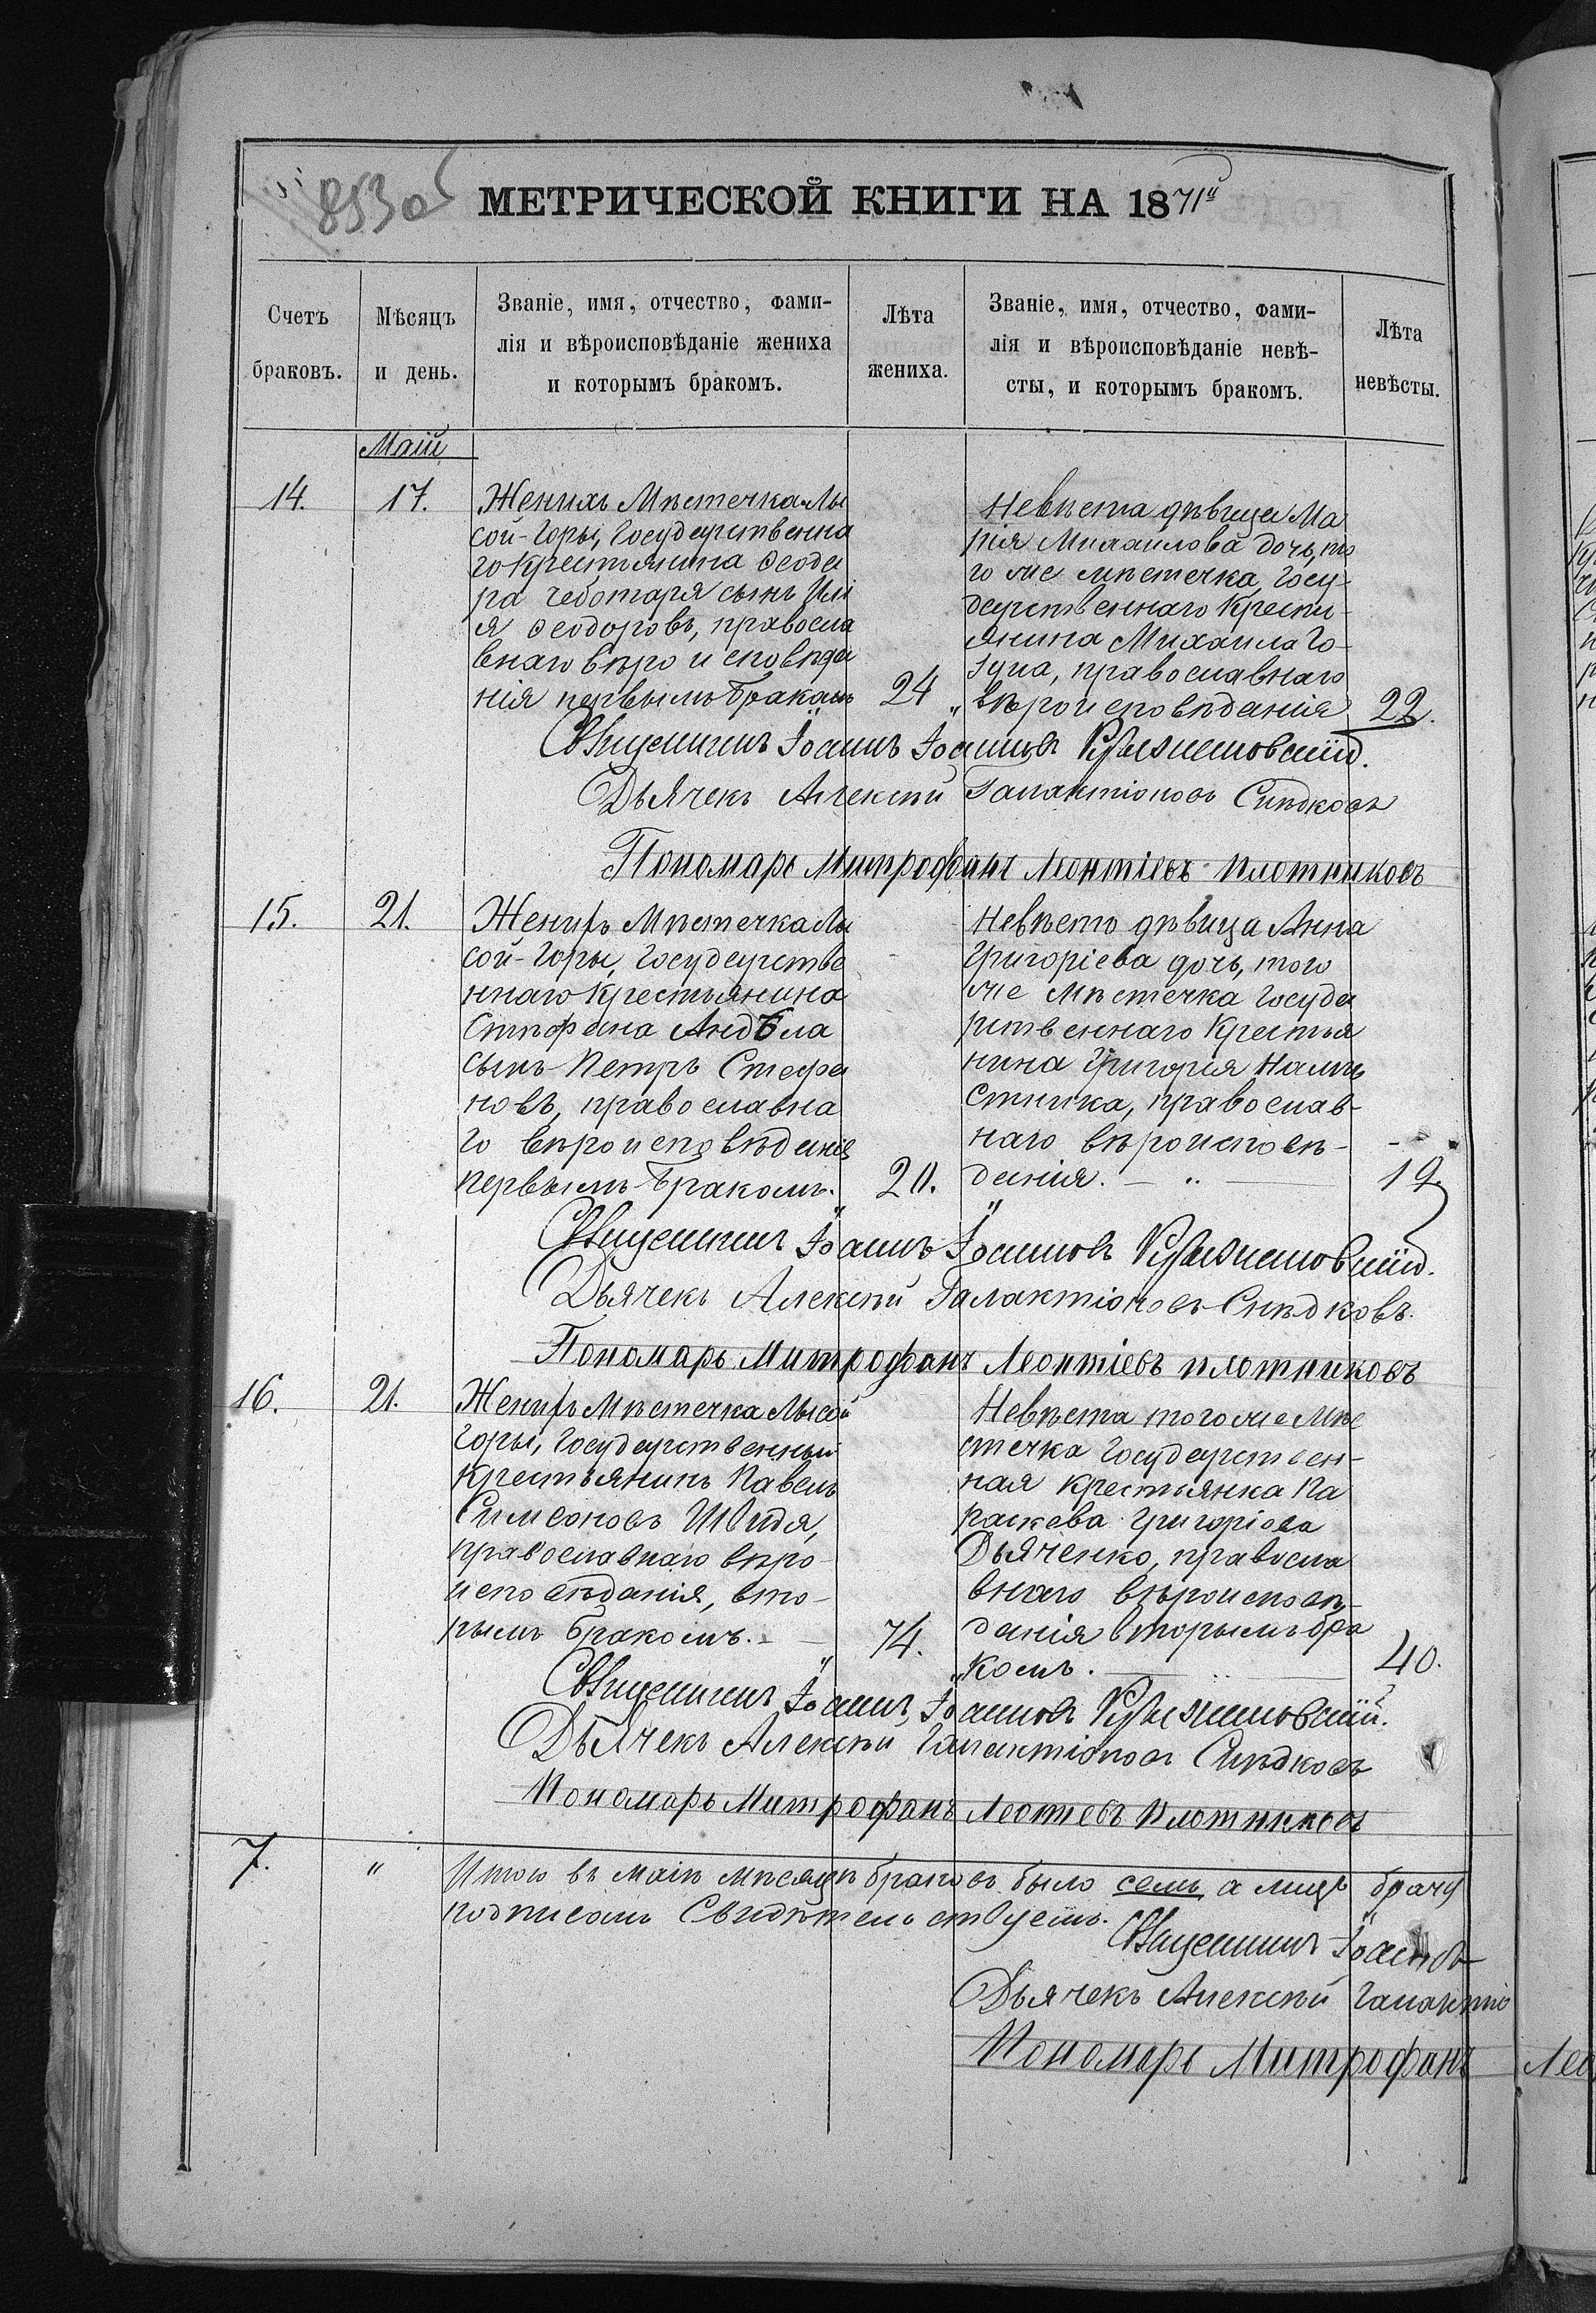 853об
МЕТРИЧЕСКОЙ КНИГИ НА 1871й
Счетъ браковъ.
Мѣсяцъ и день.
Званіе, имя, отчество, фами-
лія и вѣроисповѣданіе жениха
и которымъ бракомъ.
Лѣта жениха.
Званіе, имя, отчество, фами-
лія и вѣроисповѣданіе невѣ-
сты, и которымъ бракомъ.
Лѣта невѣсты.
Маій
14.
17.
Женихъ Мѣстечка Лы
сой-Горы, Государственна
го Крестьянина Ѳеодо
ра Чеботаря сынъ Илі
я Ѳеодоровъ, правосла
внаго вѣроисповѣда
нія первымъ бракомъ
24
Невѣста дѣвица Ма
рія Михаилова дочь, то
го же мѣстечка, Госу-
дарственнаго Крестья-
янина Михаила Го-
, православнаго
вѣроисповѣданія
22.
Священникъ Іоаннъ Іоанновъ
Дьячекъ Алексѣй Галактіоновъ Снѣдковъ
Пономарь Митрофанъ Леонтіевъ Плотниковъ
15.
21.
Женихъ Мѣстечка Лы
сой-Горы, Государстве
ннаго Крестьянина
Стефана
сынъ Петръ Стефа
новъ, православна
го вѣроисповѣданія
первымъ бракомъ.
20.
Невѣста дѣвица Анна
Григоріева дочь, того
же Мѣстечка Госуда
рственнаго Крестья
нина Григорія Намѣ
стника, православ-
наго вѣроисповѣ-
данія.
19.
Священникъ Іоаннъ Іоанновъ
Дьячекъ Алексѣй Галактіоновъ Снѣдковъ.
Пономарь Митрофанъ Леонтіевъ Плотниковъ
16.
21.
Женихъ Мѣстечка Лысой
Горы, Государственный
Крестьянинъ Павелъ
Симеоновъ Швидя,
православнаго вѣро-
исповѣданія, вто-
рымъ бракомъ.
74.
Невѣста того же Мѣ
стечка Государствен-
ная крестьянка Па
раскева Григоріева
Дьяченко, правосла
внаго вѣроисповѣ-
данія вторымъ бра
комъ.
40.
Священникъ Іоаннъ Іоанновъ
Дьячекъ Алексѣй Галактіоновъ Снѣдковъ
Пономарь Митрофанъ Леонтевъ Плотниковъ
7.
"
Итого въ маіѣ мѣсяцѣ браковъ было семь, а лицъ брачу
подписомъ Свидѣтельствуемъ.
Священникъ Іоаннъ
Дьячекъ Алексѣй Галактіо
Пономарь Митрофанъ